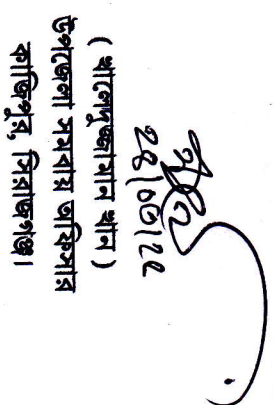 ( খালেদুজ্জামান খান )
উপজেলা সমবায় অফিসার
কাজিপুর, সিরাজগঞ্জ।